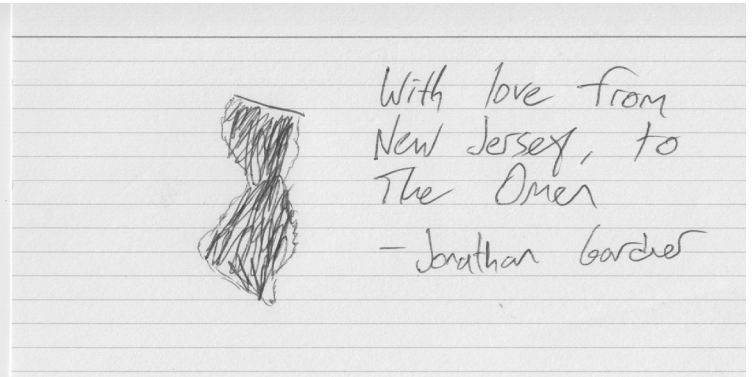 With love from
New Jersey, to
The Omen
- Jonathan Gardner